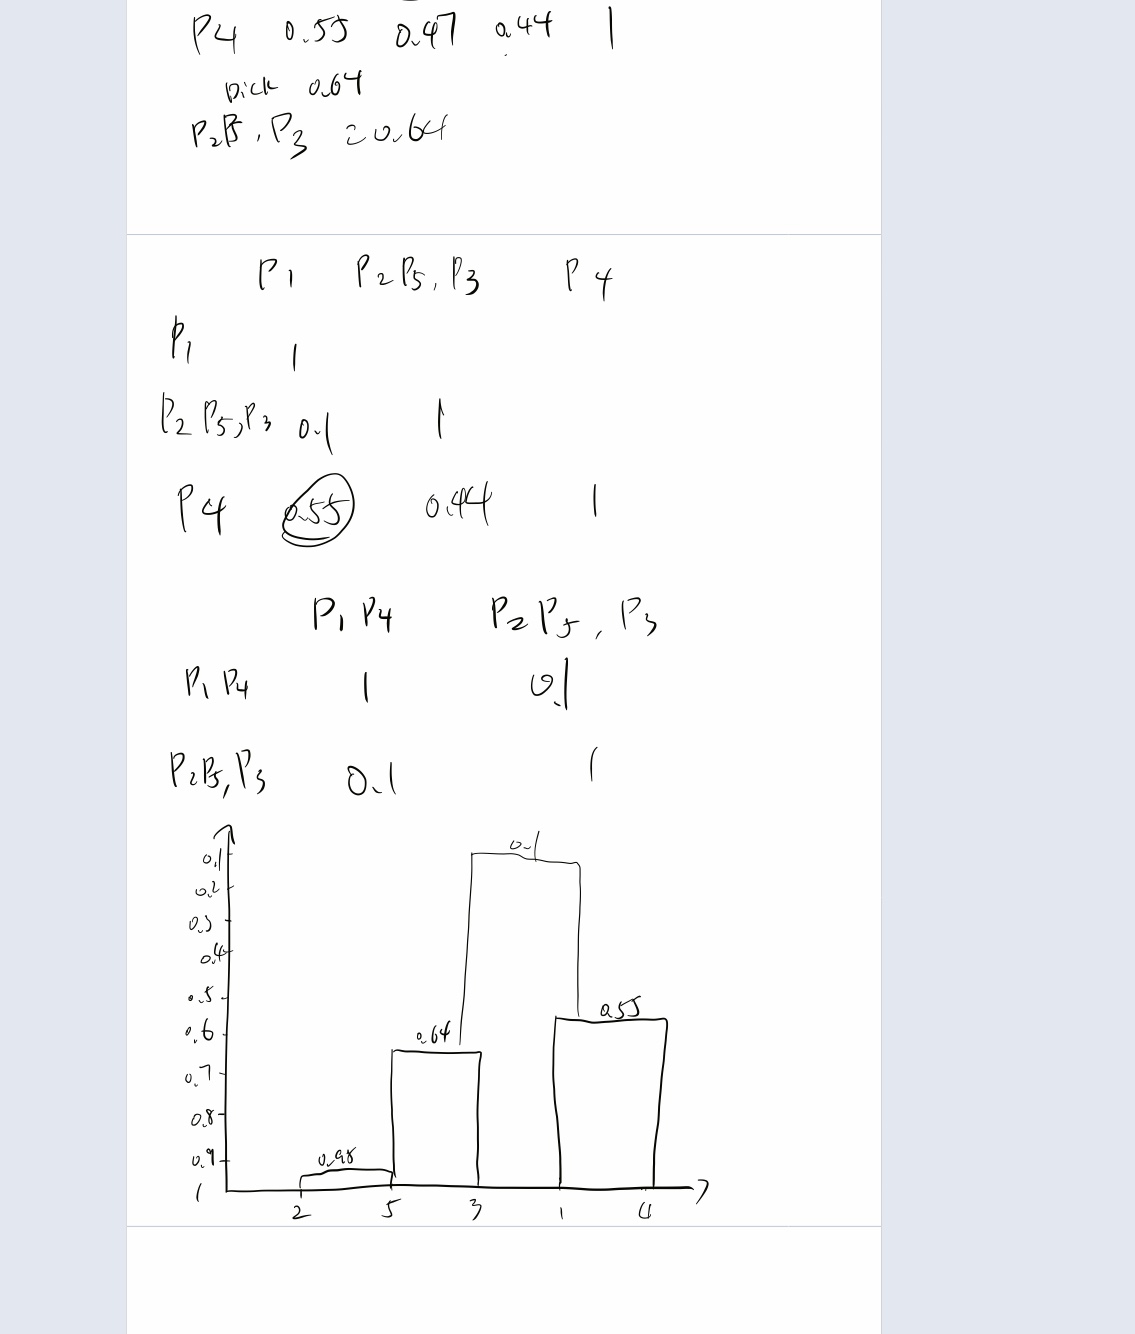 P4 0.55 0.47 0.44 1
pick 0.64
P2P5, P3 = 0.64
P1 P2P5, P3 P4
P1 1
P2 P5, P3 0.1 1
P4 0.55 0.44 1
P1 P4 P2 P5, P3
P1 P4 1 0.1
P2P5, P3 0.1 1
0.1
0.1
0.2
0.3
0.4
0.5
0.55
0.6
0.64
0.7
0.8
0.9
0.98
1
2 5 3 1 4